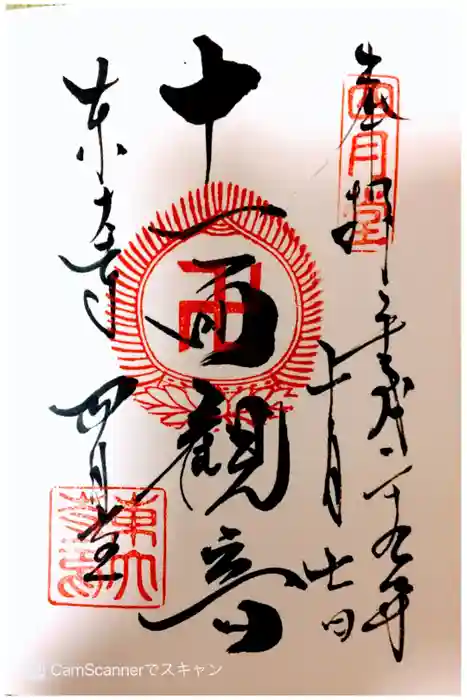 奉拝
四月堂
平成二十九年
十一月七日
十一面観音
東大寺
四月堂
CamScannerでスキャン